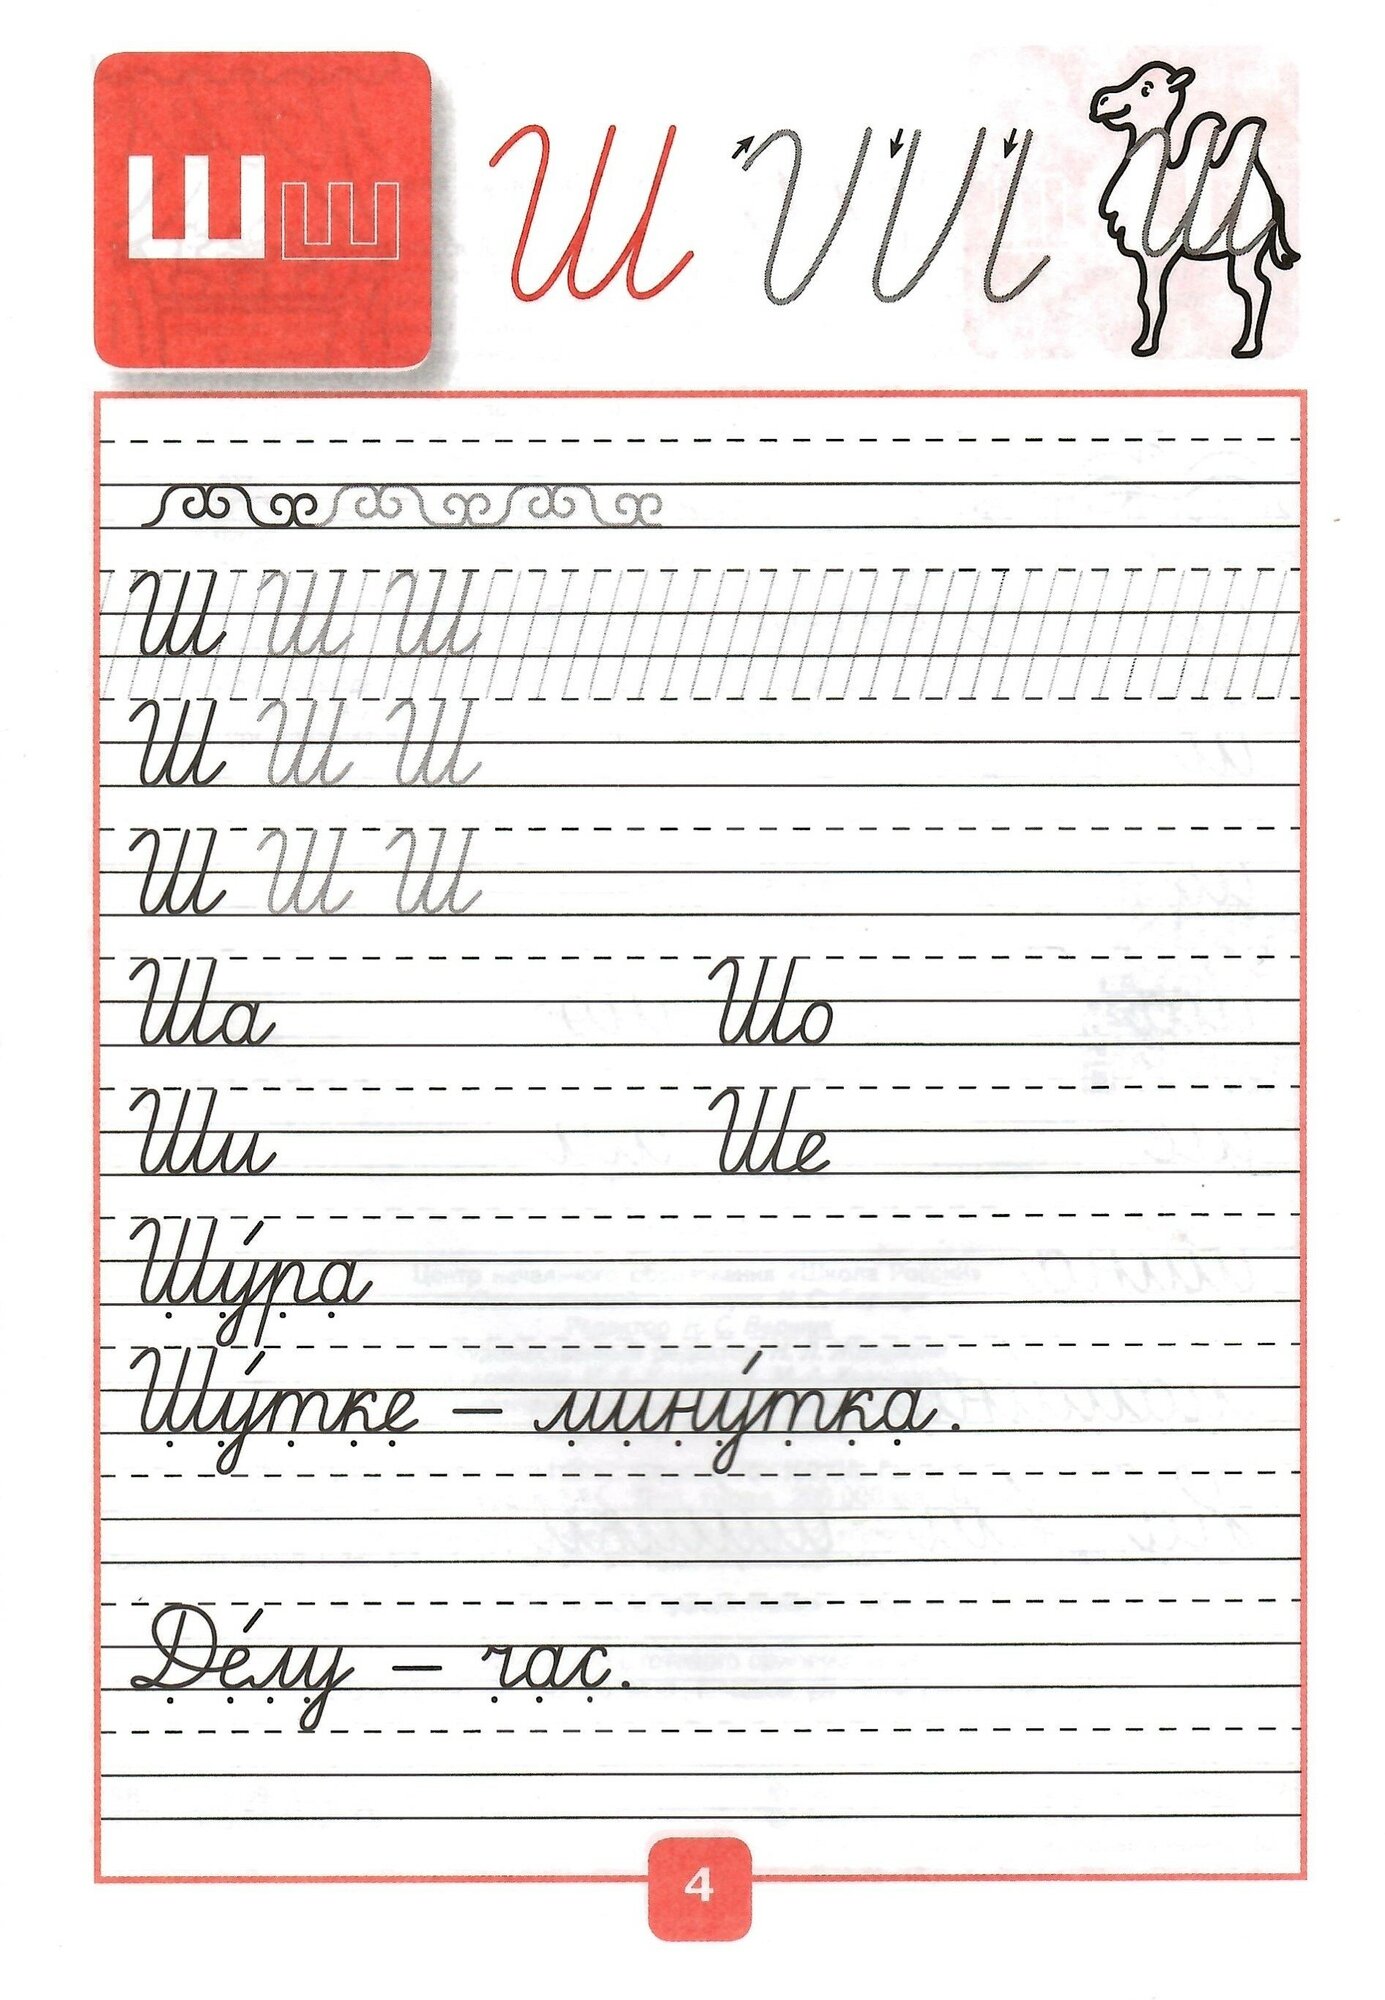 Шш Ш Ш
Ш Ш Ш
Ш Ш Ш
Ш Ш Ш
Ша Шо
Ши Ше
Шу́ра
Шу́тке – мину́тка.
Де́лу – час.
4